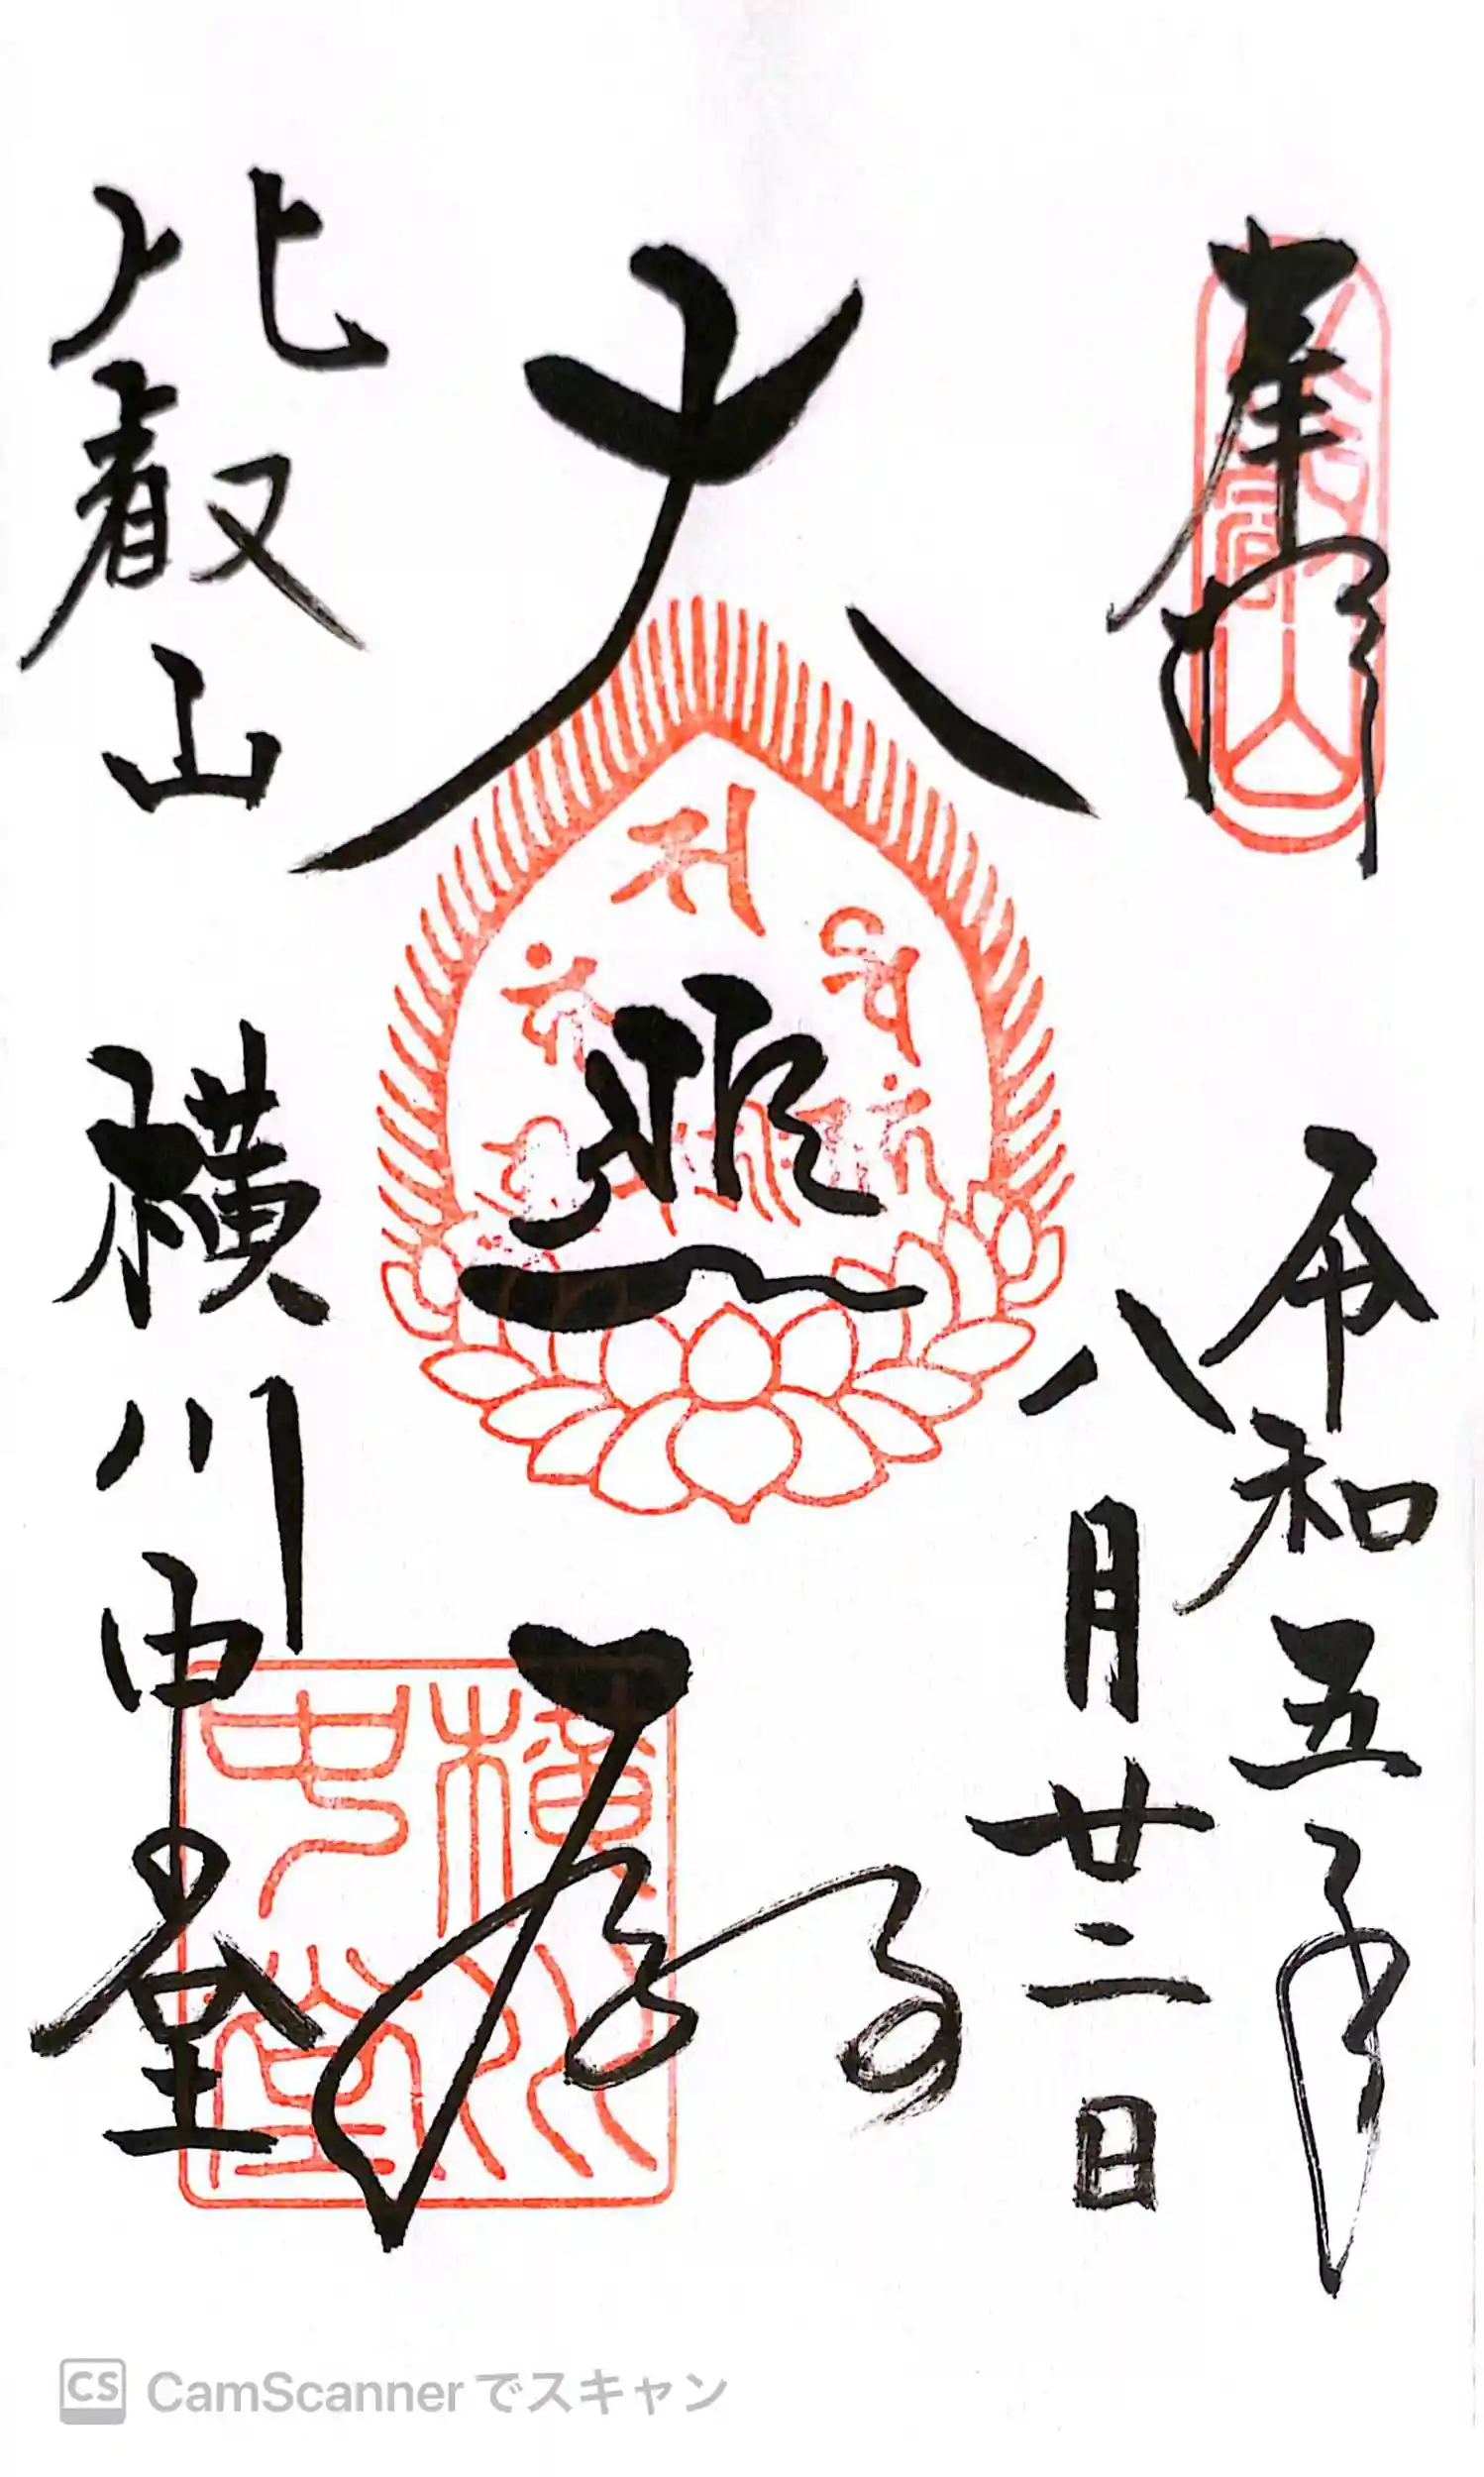 奉拝
令和五年
八月廿三日
大悲殿
比叡山
横川中堂
比叡山
横川中堂
CS CamScannerでスキャン